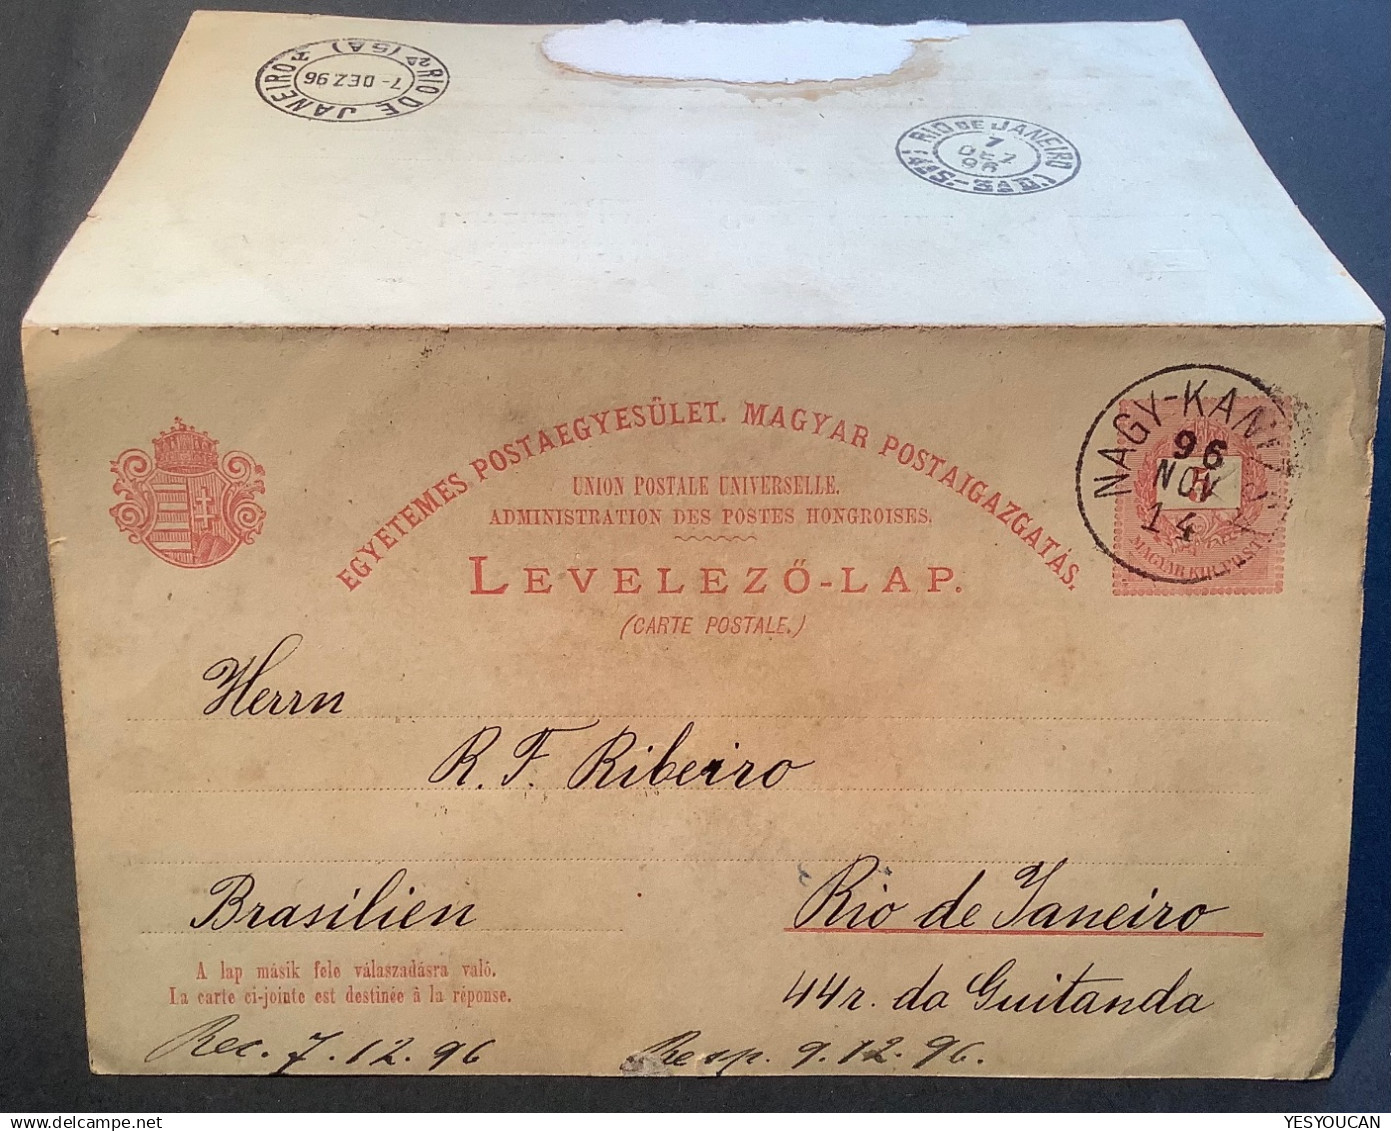 RIO DE JANEIRO
4ª (SA)
7-DEZ 96
RIO DE JANEIRO
7
DEZ
96
EGYETEMES POSTAEGYESÜLET. MAGYAR POSTAIGAZGATÁS.
UNION POSTALE UNIVERSELLE.
ADMINISTRATION DES POSTES HONGROISES.
LEVELEZŐ-LAP.
(CARTE POSTALE.)
NAGY-KANIZSA
96
NOV
14
5
MAGYAR KIR. POSTA
Herrn
R. F. Ribeiro
Brasilien
Rio de Janeiro
A lap másik fele válaszadásra való.
La carte ci-jointe est destinée à la réponse.
44 r. da Guitanda
Rec. 7. 12. 96
Resp. 9. 12. 96.
YESYOUCAN